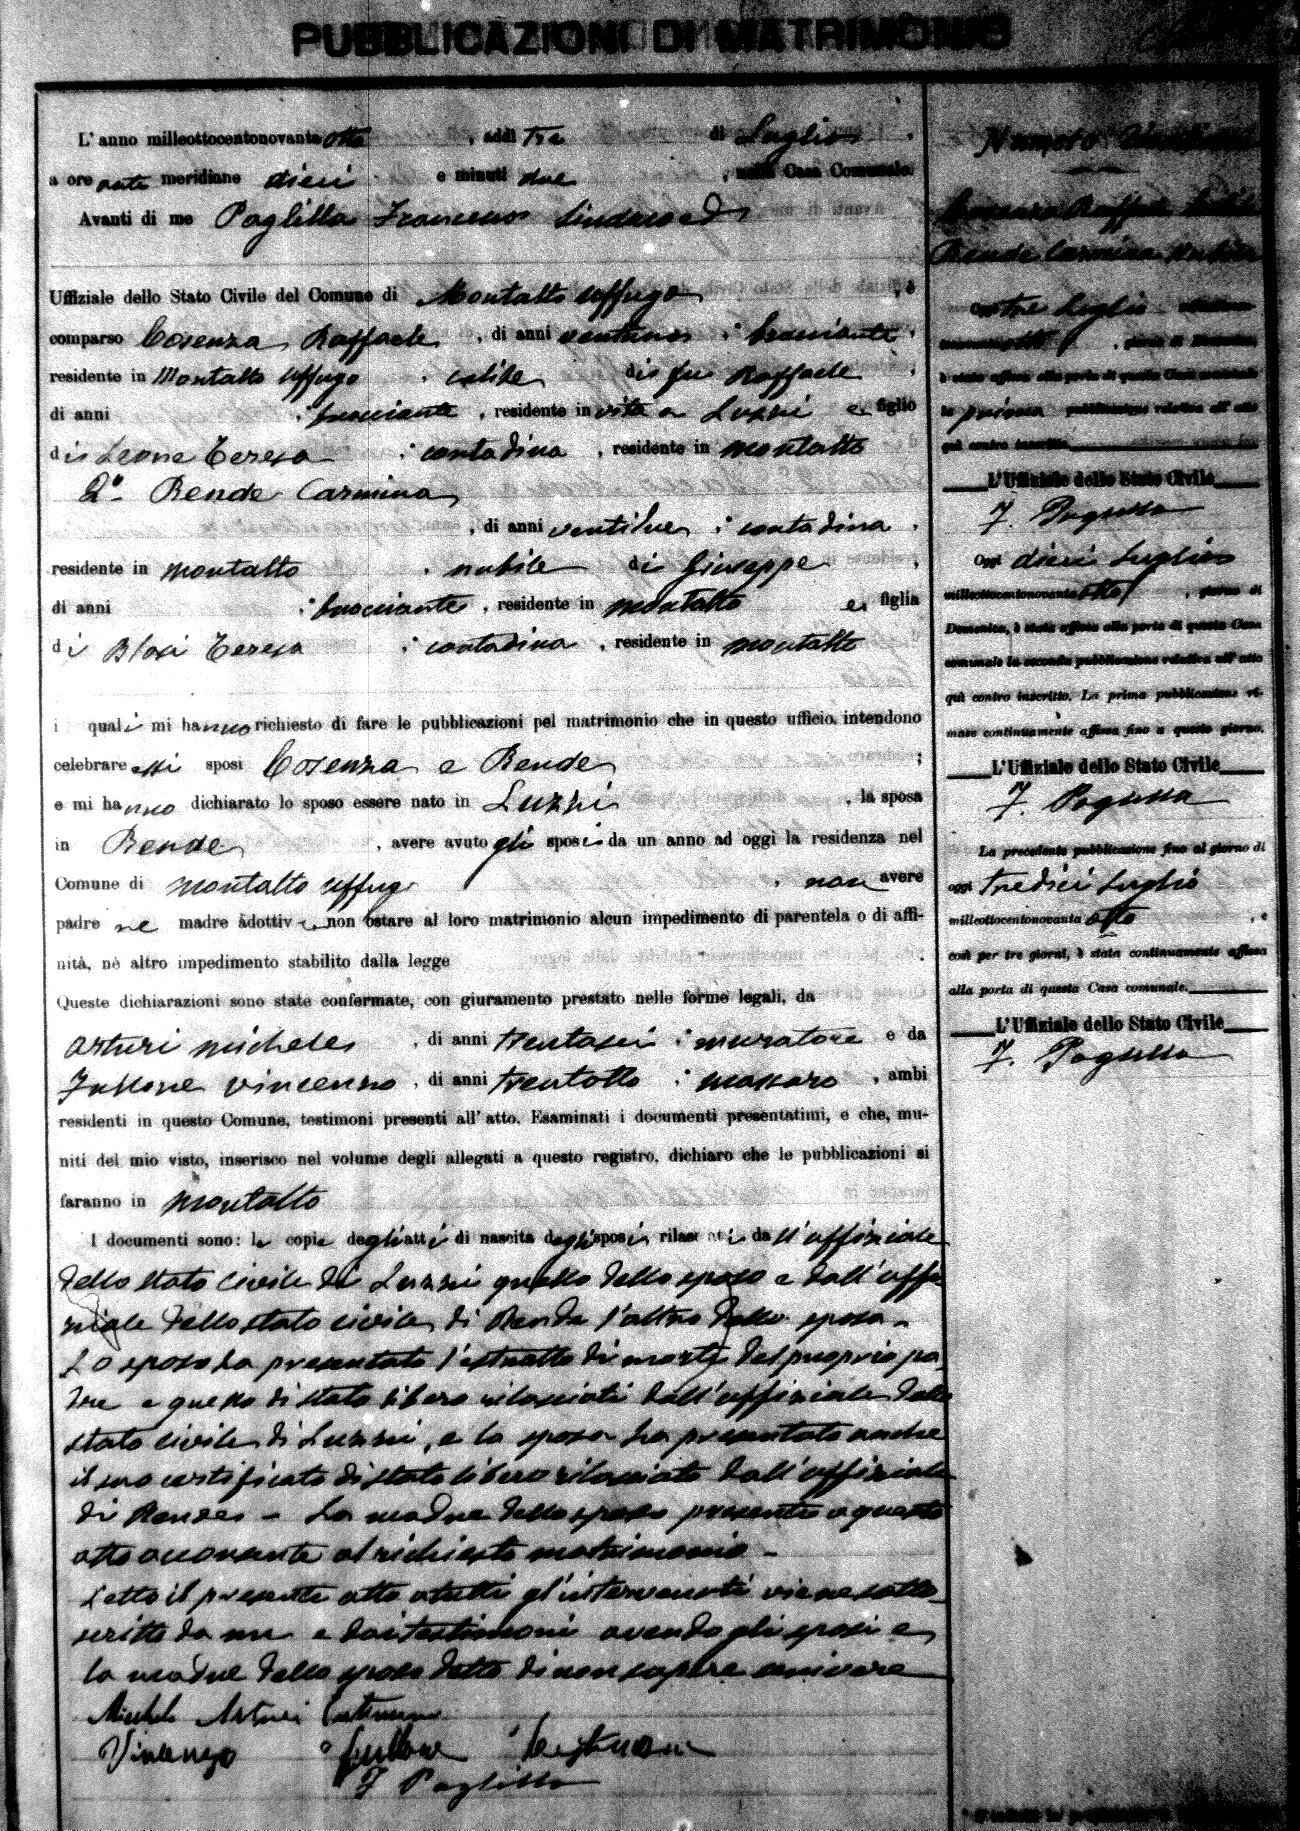 PUBBLICAZIONI DI MATRIMONIO
L'anno milleottocentonovanta otto, addì tre di Luglio,
a ore ante meridiane dieci e minuti due, nella Casa Comunale.
Avanti di me Paglilla Francesco Sindaco ed
Uffiziale dello Stato Civile del Comune di Montalto Uffugo, è
comparso Cosenza Raffaele, di anni ventuno, bracciante,
residente in Montalto Uffugo, celibe di fu Raffaele,
di anni , bracciante, residente in vita a Luzzi e figlio
di Leone Teresa, contadina, residente in Montalto
2° Rende Carmina
, di anni ventidue, contadina,
residente in Montalto, nubile di Giuseppe,
di anni , bracciante, residente in Montalto e figlia
di Blasi Teresa, contadina, residente in Montalto
i quali mi hanno richiesto di fare le pubblicazioni pel matrimonio che in questo ufficio intendono
celebrare essi sposi Cosenza e Rende;
e mi hanno dichiarato lo sposo essere nato in Luzzi, la sposa
in Rende, avere avuto gli sposi da un anno ad oggi la residenza nel
Comune di Montalto Uffugo, non avere
padre ne madre adottiv e non ostare al loro matrimonio alcun impedimento di parentela o di affi-
nità, nè altro impedimento stabilito dalla legge
Queste dichiarazioni sono state confermate, con giuramento prestato nelle forme legali, da
Arturi Michele, di anni trentasei, muratore e da
Fullone Vincenzo, di anni trentotto, massaro, ambi
residenti in questo Comune, testimoni presenti all'atto. Esaminati i documenti presentatimi, e che, mu-
niti del mio visto, inserisco nel volume degli allegati a questo registro, dichiaro che le pubblicazioni si
faranno in Montalto
I documenti sono: le copie degli atti di nascita degli sposi rilasciati dall'uffiziale
dello stato civile di Luzzi quello dello sposo e dall'uffi
ziale dello stato civile di Rende l'altro della sposa.
Lo sposo ha presentato l'estratto di morte del proprio pa
dre e quello di stato libero rilasciati dall'uffiziale dello
stato civile di Luzzi, e la sposa ha presentato anche
il suo certificato di stato libero rilasciato dall'uffiziale
di Rende - La madre dello sposo presente a questo
atto acconsente al richiesto matrimonio -
Letto il presente atto a tutti gl'intervenuti viene sotto
scritto da me e dai testimoni avendo gli sposi e
la madre dello sposo detto di non sapere scrivere
Michele Arturi testimone
Vincenzo Fullone testimone
F Paglilla
Numero
Cosenza Raffaele celibe
Rende Carmina nubile
Oggi tre Luglio milleottocento
novanta otto, giorno di Domenica,
è stata affissa alla porta di questa Casa comunale
la prima pubblicazione relativa all'atto
quì contro inscritto.
L'Uffiziale dello Stato Civile
F. Paglilla
Oggi dieci Luglio
milleottocentonovanta otto, giorno di
Domenica, è stata affissa alla porta di questa Casa
comunale la seconda pubblicazione relativa all'atto
quì contro inscritto. La prima pubblicazione ri-
mase continuamente affissa fino a questo giorno.
L'Uffiziale dello Stato Civile
F. Paglilla
La precedente pubblicazione fino al giorno di
oggi tredici Luglio
milleottocentonovanta otto, e
così per tre giorni, è stata continuamente affissa
alla porta di questa Casa comunale.
L'Uffiziale dello Stato Civile
F. Paglilla